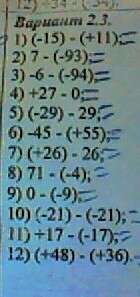 12) +34 - (-34).
Вариант 2.3.
1) (-15) - (+11);=
2) 7 - (-93);=
3) -6 - (-94)=
4) +27 - 0;=
5) (-29) - 29;=
6) -45 - (+55);=
7) (+26) - 26;=
8) 71 - (-4);=
9) 0 - (-9);=
10) (-21) - (-21);=
11) +17 - (-17);=
12) (+48) - (+36).=